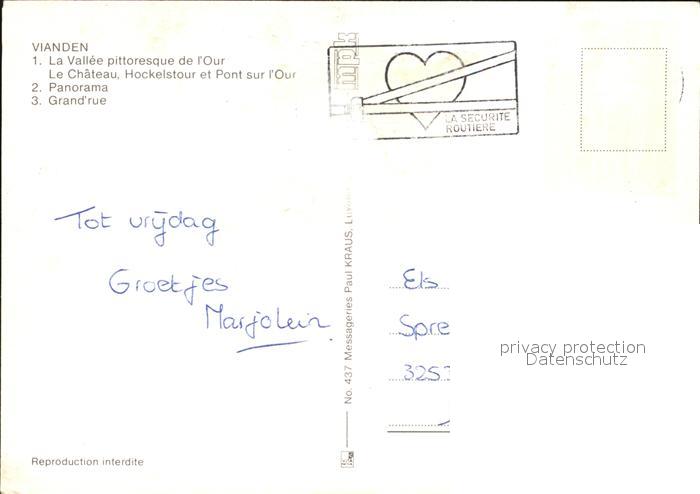 VIANDEN
1. La Vallée pittoresque de l'Our
Le Château, Hockelstour et Pont sur l'Our
2. Panorama
3. Grand'rue
mpk
LA SECURITE
ROUTIERE
Tot vrijdag
Groetjes
Marjolein
No. 437 Messageries Paul KRAUS,
Els
Spre
325
privacy protection
Datenschutz
Reproduction interdite